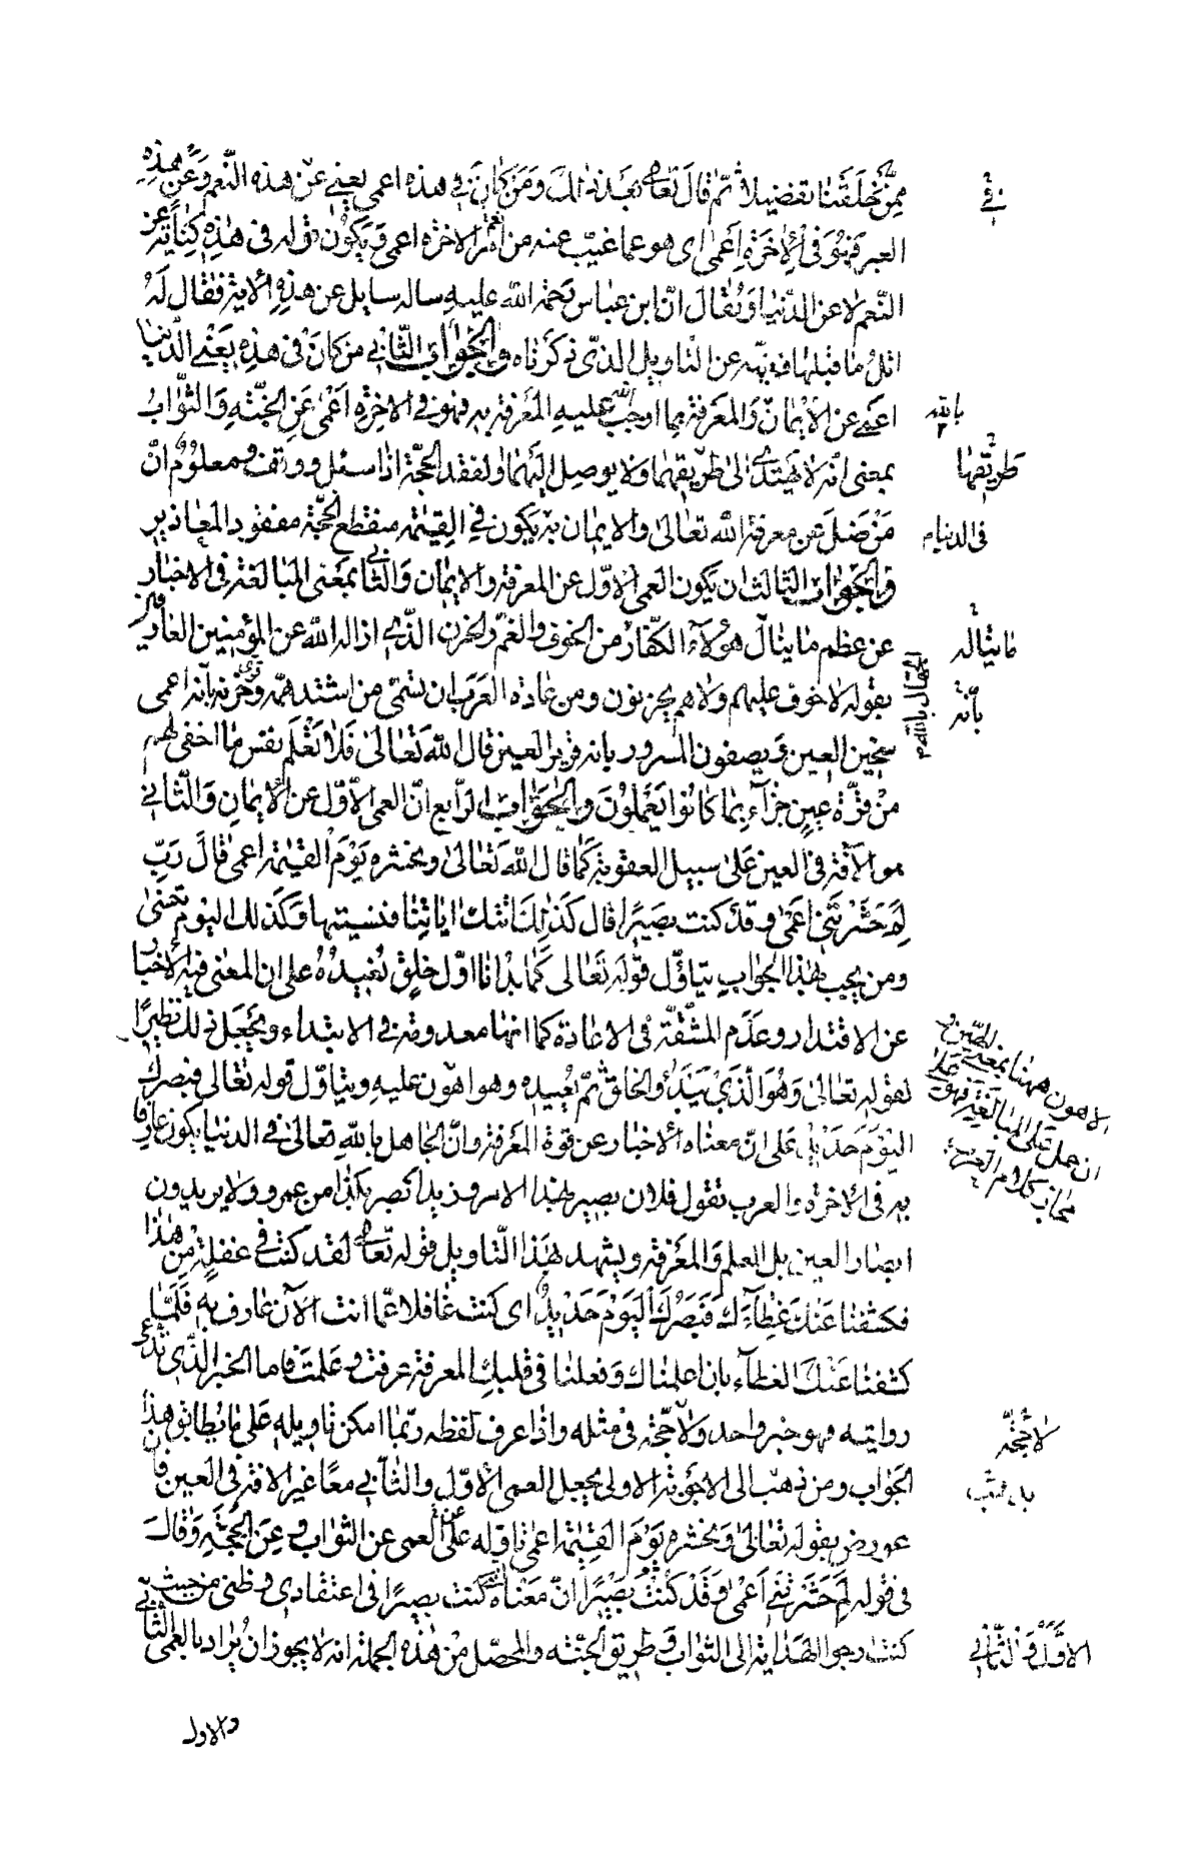 ممن خلقنا تفضيلا ثم قال تعالى بعد ذلك ومن كان في هذه اعمى يعني عن هذه النعم وعن هذه
العبر فهو في الاخرة اعمى اى هو عما غيب عنه من امر الاخرة اعمى ويكون قوله في هذه كناية عن
النعم لا عن الدنيا ويقال ان ابن عباس رحمة الله عليه ساله سايل عن هذه الاية فقال له
اتل ما قبلها فنبهه عن التاويل الذى ذكرناه والجواب الثاني من كان في هذه يعني الدنيا
اعمى عن الايمان والمعرفة بما اوجب الله عليه المعرفة به فهو في الاخرة اعمى عن الجنة والثواب
بالله
بمعنى انه لا يهتدى الى طريقهما ولا يوصل اليهما او لفقد الحجة اذا سئل ووقف ومعلوم ان
طريقهما
من ضل عن معرفة الله تعالى والايمان به يكون في القيمة منقطع الحجة مفقود المعاذير
فى الدنيا
والجواب الثالث ان يكون العمى الاول عن المعرفة والايمان والثاني بمعنى المبالغة في الاخبار
عن عظم ما ينال هؤلاء الكفار من الخوف والغم والحزن الذى ازاله الله عن المؤمنين العارفين
ما يناله
الجهال بالله
بقوله لا خوف عليهم ولا هم يحزنون ومن عادة العرب ان تسمى من اشتد همه وقوى حزنه بانه اعمى
بانه
سخين العين ويصفون المسرور بانه قرير العين قال الله تعالى فلا تعلم نفس ما اخفى لهم
من قرة عين جزاء بما كانوا يعملون والجواب الرابع ان العمى الاول عن الايمان والثاني
هو الافة في العين على سبيل العقوبة كما قال الله تعالى ونحشره يوم القيمة اعمى قال رب
لم حشرتني اعمى وقد كنت بصيرا قال كذلك اتتك اياتنا فنسيتها وكذلك اليوم تنسى
ومن يجيب بهذا الجواب يتاول قوله تعالى كما بدانا اول خلق نعيده على ان المعنى فيه الاخبار
عن الاقتدار وعدم المشقة في الاعادة كما انها معدومة في الابتداء ويجعل ذلك نظيرا
لقوله تعالى وهو الذى يبدؤا الخلق ثم يعيده وهو اهون عليه ويتاول قوله تعالى فبصرك
اليوم حديد على ان معناه الاخبار عن قوة المعرفة وان الجاهل بالله تعالى في الدنيا يكون عارفا
به في الاخرة والعرب تقول فلان بصير بهذا الامر وزيد ابصر بكذا من عمرو ولا يريدون
ابصار العين بل العلم والمعرفة ويشهد بهذا التاويل قوله تعالى لقد كنت في غفلة من هذا
فكشفنا عنك غطاءك فبصرك اليوم حديد اى كنت غافلا عما انت الآن عارف به فلما
كشفنا عنك الغطاء بان اعلمناك وفعلنا في قلبك المعرفة عرفت وعلمت فاما الخبر الذى تدعى
روايته فهو خبر واحد ولا حجة في مثله واذا عرف لفظه ربما امكن تاويله على ما يطابق هذا
لا حجة
الجواب ومن ذهب الى الاجوبة الاولى يجعل العمى الاول والثاني معا غير الافة في العين فان
عورض بقوله تعالى ونحشره يوم القيمة اعمى تاوله على العمى عن الثواب وعن الحجة وقال
في قوله لم حشرتني اعمى وقد كنت بصيرا ان معناه كنت بصيرا في اعتقادى وظنى من حيث
كنت ارجو الهداية الى الثواب وطريق الجنة والمحصل من هذه الجملة انه لا يجوز ان يراد بالعمى الثاني
الاول والثاني
والاول